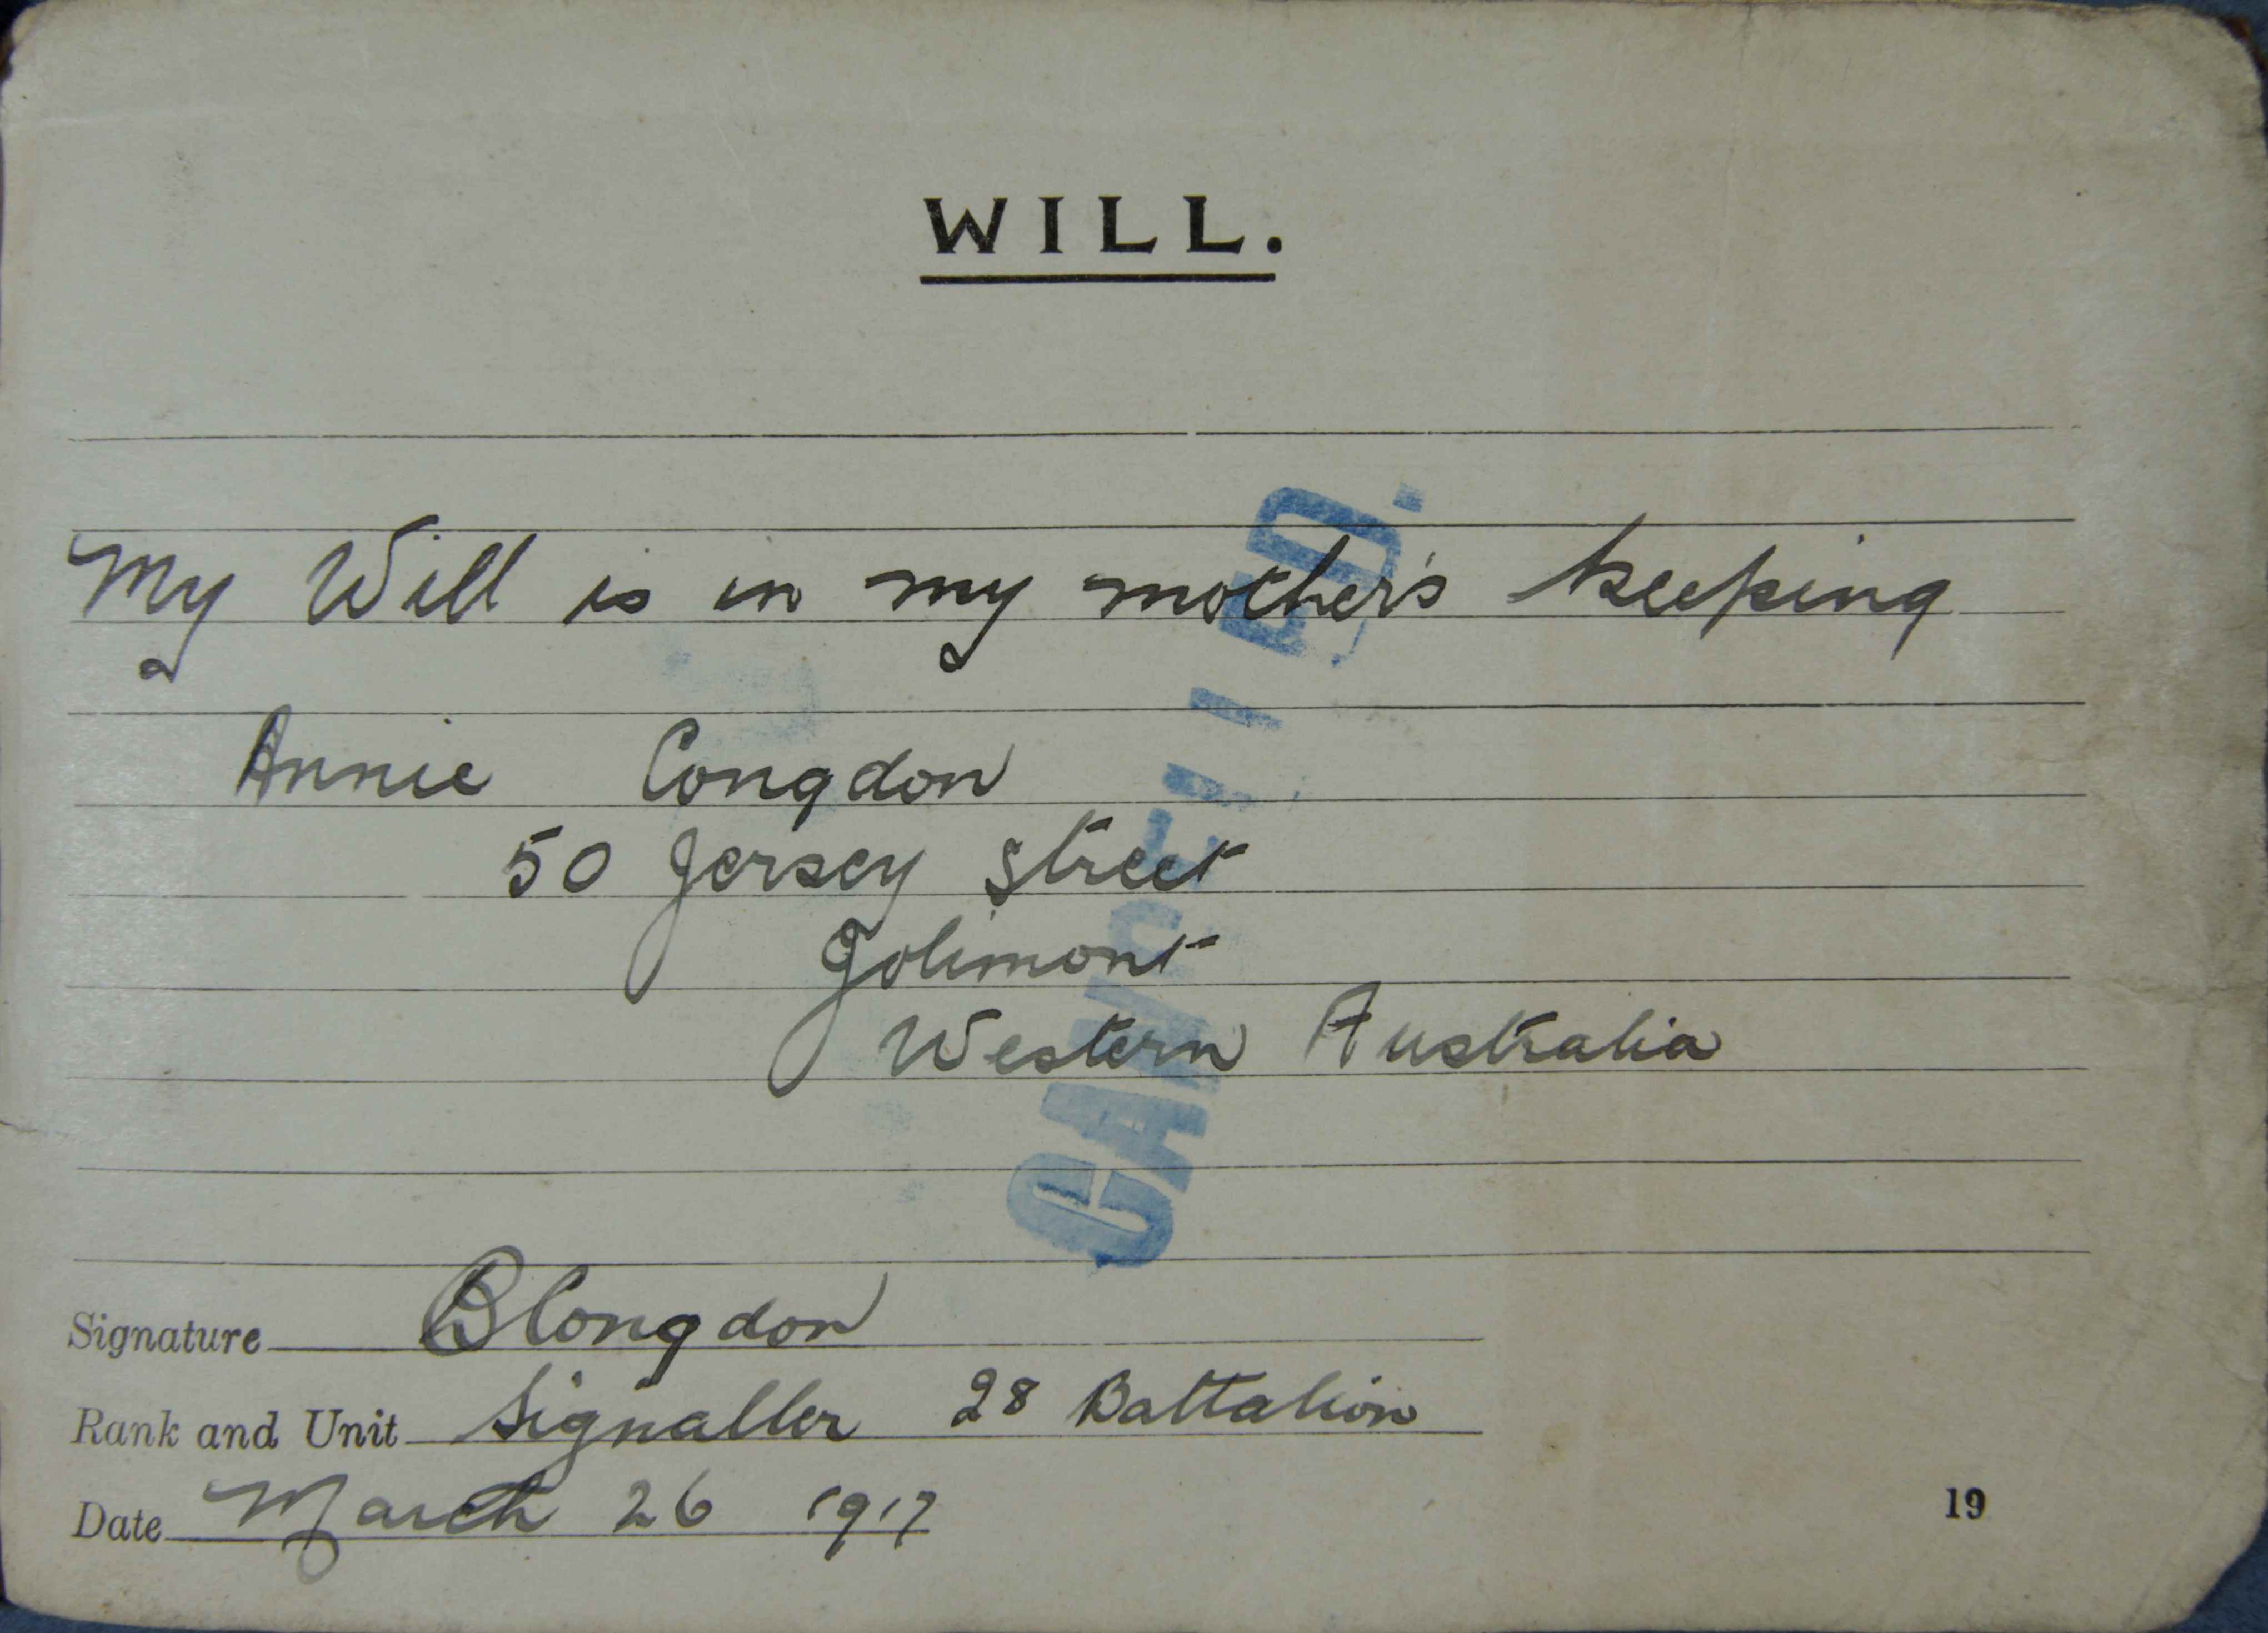 WILL.
My Will is in my mother's keeping
Annie Congdon
50 Jersey Street
Jolimont
Western Australia
CANCELLED.
Signature B Congdon
Rank and Unit Signaller 28 Battalion
Date March 26 1917
19